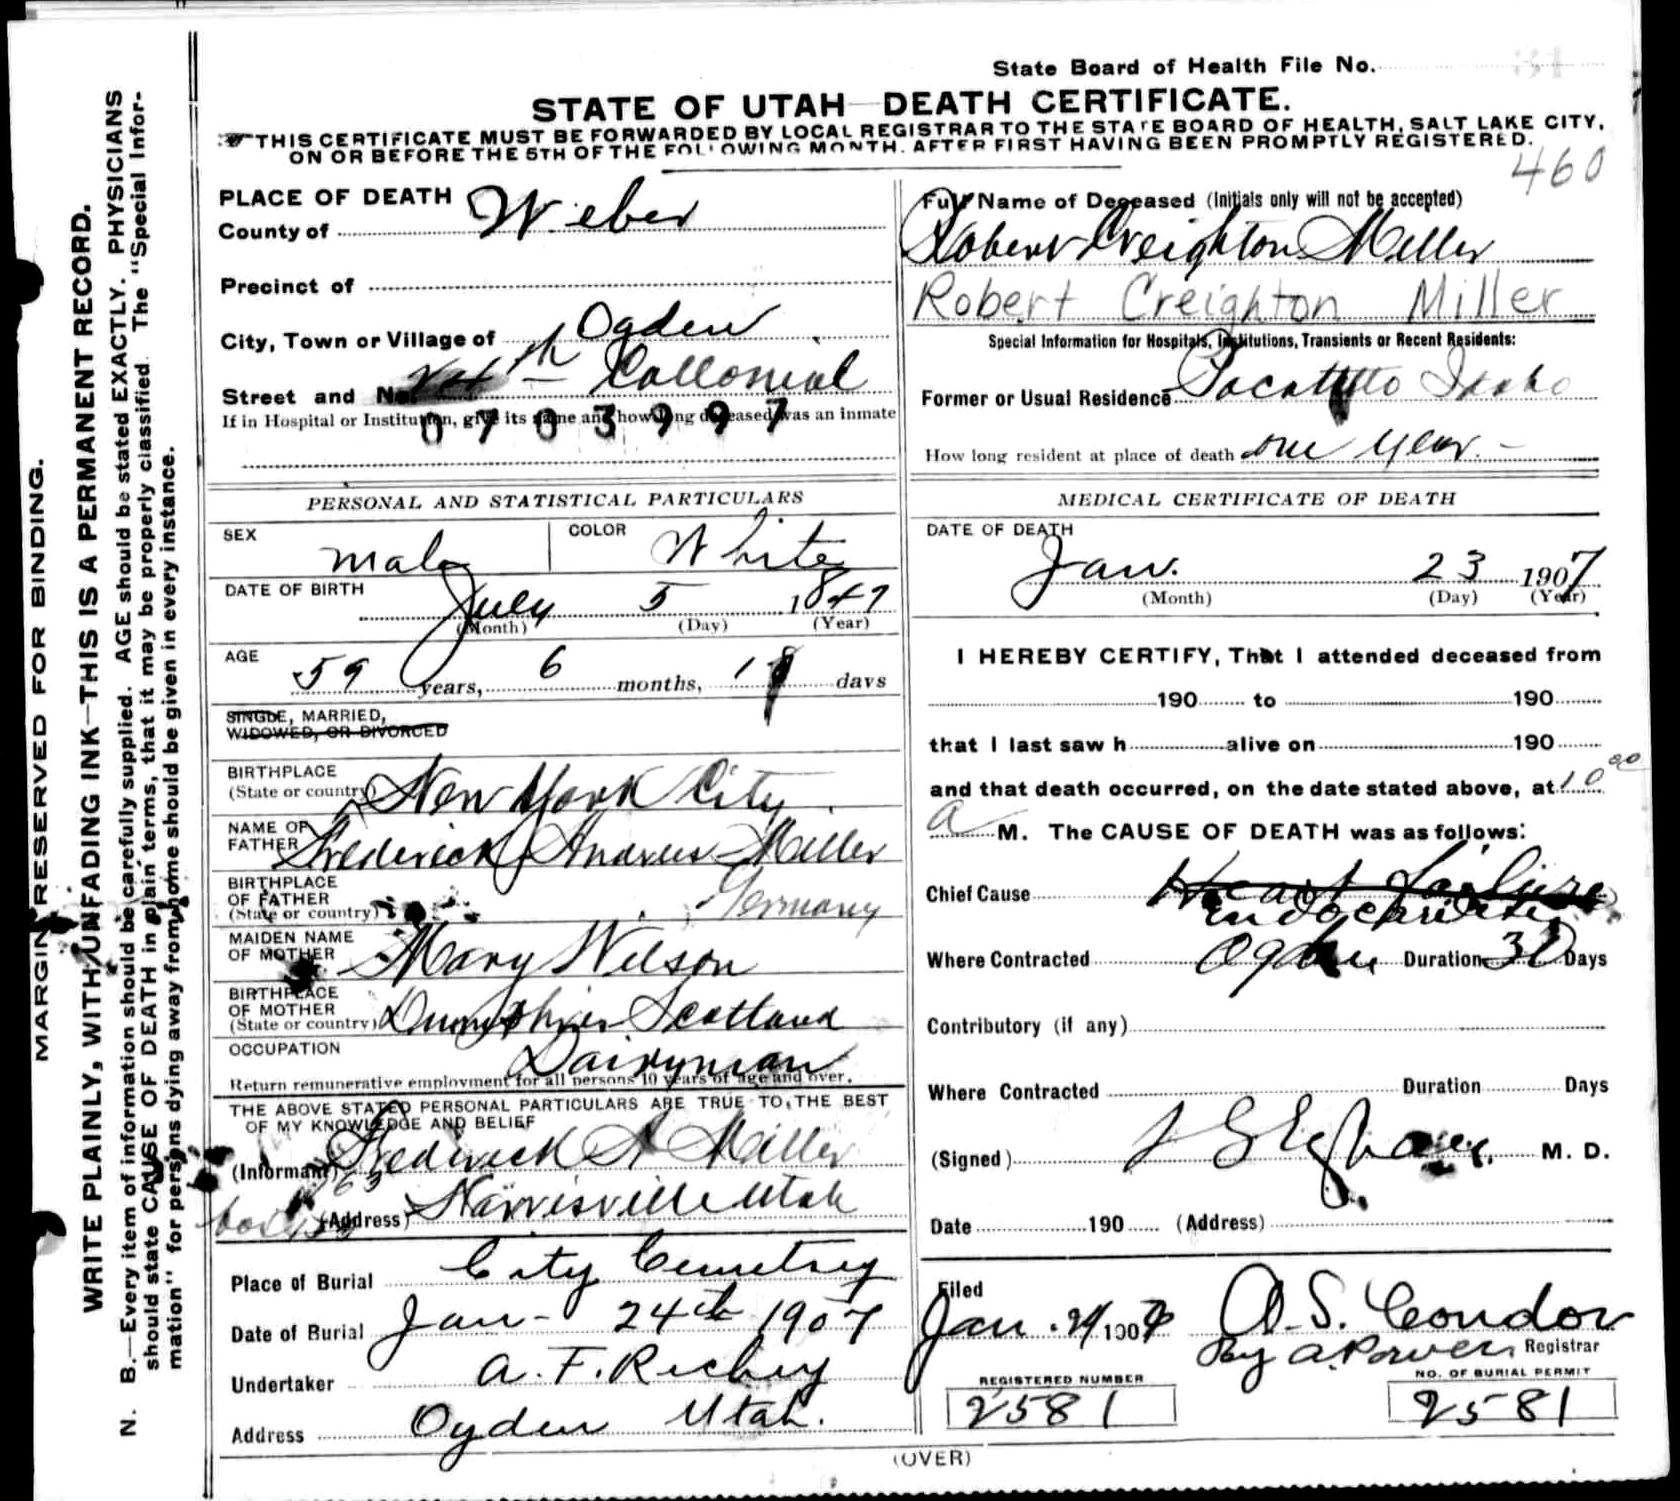 State Board of Health File No. 31
STATE OF UTAH—DEATH CERTIFICATE.
THIS CERTIFICATE MUST BE FORWARDED BY LOCAL REGISTRAR TO THE STATE BOARD OF HEALTH, SALT LAKE CITY,
ON OR BEFORE THE 5TH OF THE FOLLOWING MONTH. AFTER FIRST HAVING BEEN PROMPTLY REGISTERED.
460
MARGIN RESERVED FOR BINDING.
WRITE PLAINLY, WITH UNFADING INK—THIS IS A PERMANENT RECORD.
N. B.—Every item of information should be carefully supplied. AGE should be stated EXACTLY. PHYSICIANS
should state CAUSE OF DEATH in plain terms, that it may be properly classified. The "Special Infor-
mation" for persons dying away from home should be given in every instance.
PLACE OF DEATH
County of Weber
Precinct of
City, Town or Village of Ogden
Street and No. 24th Collonial
If in Hospital or Institution, give its name and how long deceased was an inmate
0703997
PERSONAL AND STATISTICAL PARTICULARS
SEX male COLOR White
DATE OF BIRTH July 5 1847
(Month) (Day) (Year)
AGE 59 years, 6 months, 18 days
SINGLE, MARRIED,
WIDOWED, OR DIVORCED
BIRTHPLACE
(State or country) New York City
NAME OF
FATHER Frederick Andrus Miller
BIRTHPLACE
OF FATHER
(State or country) Germany
MAIDEN NAME
OF MOTHER Mary Wilson
BIRTHPLACE
OF MOTHER
(State or country) Dumphries Scotland
OCCUPATION Dairyman
Return remunerative employment for all persons 10 years of age and over.
THE ABOVE STATED PERSONAL PARTICULARS ARE TRUE TO THE BEST
OF MY KNOWLEDGE AND BELIEF
(Informant) Frederick A Miller
(Address) Harrisville Utah
Place of Burial City Cemetrey
Date of Burial Jan - 24th 1907
Undertaker A. F. Richey
Address Ogden Utah.
Full Name of Deceased (Initials only will not be accepted)
Robert Creighton Miller
Robert Creighton Miller
Special Information for Hospitals, Institutions, Transients or Recent Residents:
Former or Usual Residence Pocatello Idaho
How long resident at place of death one year.
MEDICAL CERTIFICATE OF DEATH
DATE OF DEATH
Jan. 23 1907
(Month) (Day) (Year)
I HEREBY CERTIFY, That I attended deceased from
190 to 190
that I last saw h alive on 190
and that death occurred, on the date stated above, at 10 00
a M. The CAUSE OF DEATH was as follows:
Chief Cause Heart failure
endocarditis
Where Contracted Ogden Duration 30 Days
Contributory (if any)
Where Contracted Duration Days
(Signed) M. D.
Date 190 (Address)
Filed
Jan. 24 1907 A. S. Condon
By A. Powers Registrar
REGISTERED NUMBER
2581
NO. OF BURIAL PERMIT
2581
(OVER)